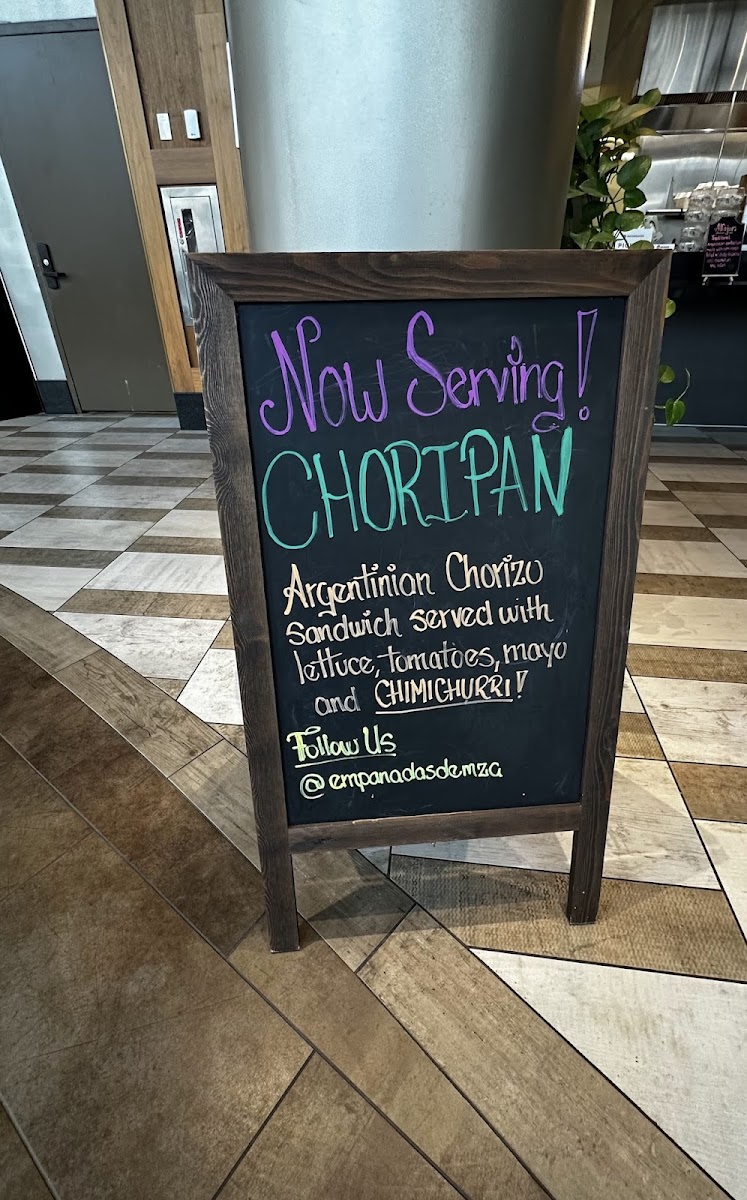 Now Serving!
CHORIPAN
Argentinian Chorizo
sandwich served with
lettuce, tomatoes, mayo
and CHIMICHURRI!
Follow Us
@empanadasdemza